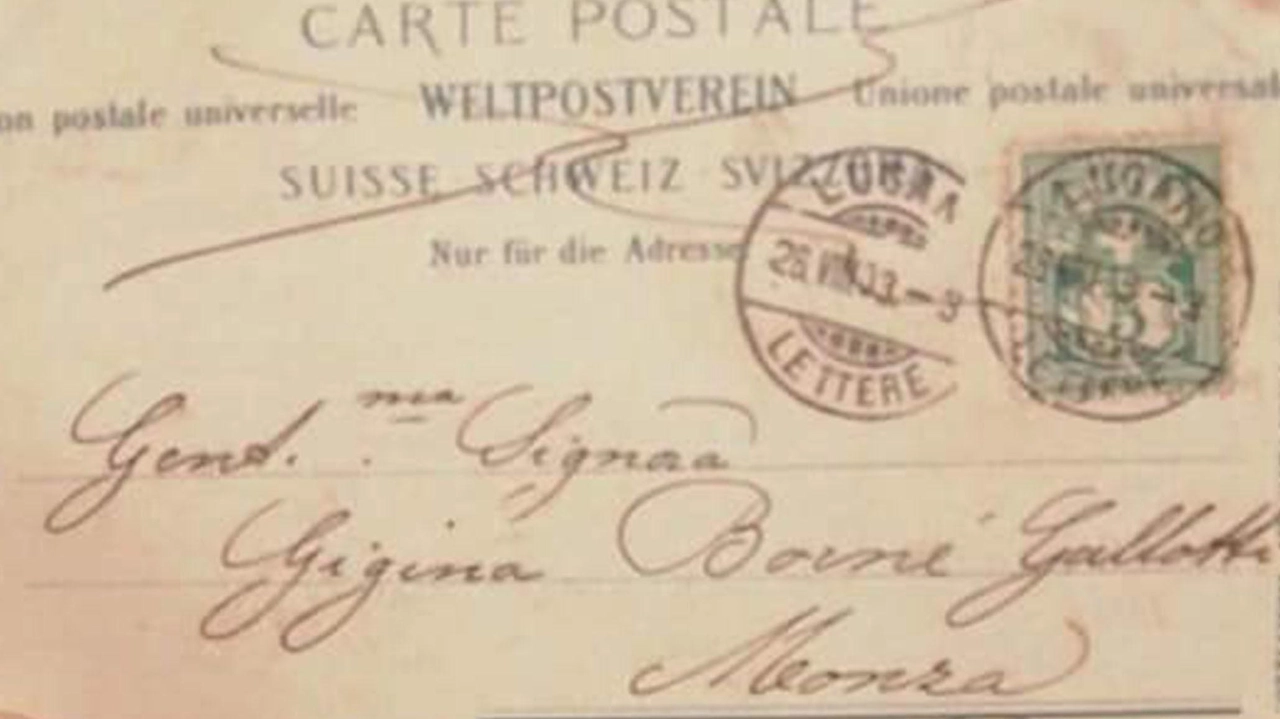 CARTE POSTALE
on postale universelle WELTPOSTVEREIN Unione postale universal
SUISSE SCHWEIZ SVIZZERA
Nur für die Adresse
LUGANO
LETTERE
LUGANO
5
Gent.ma Signora
Gigina Gallotti
Monza